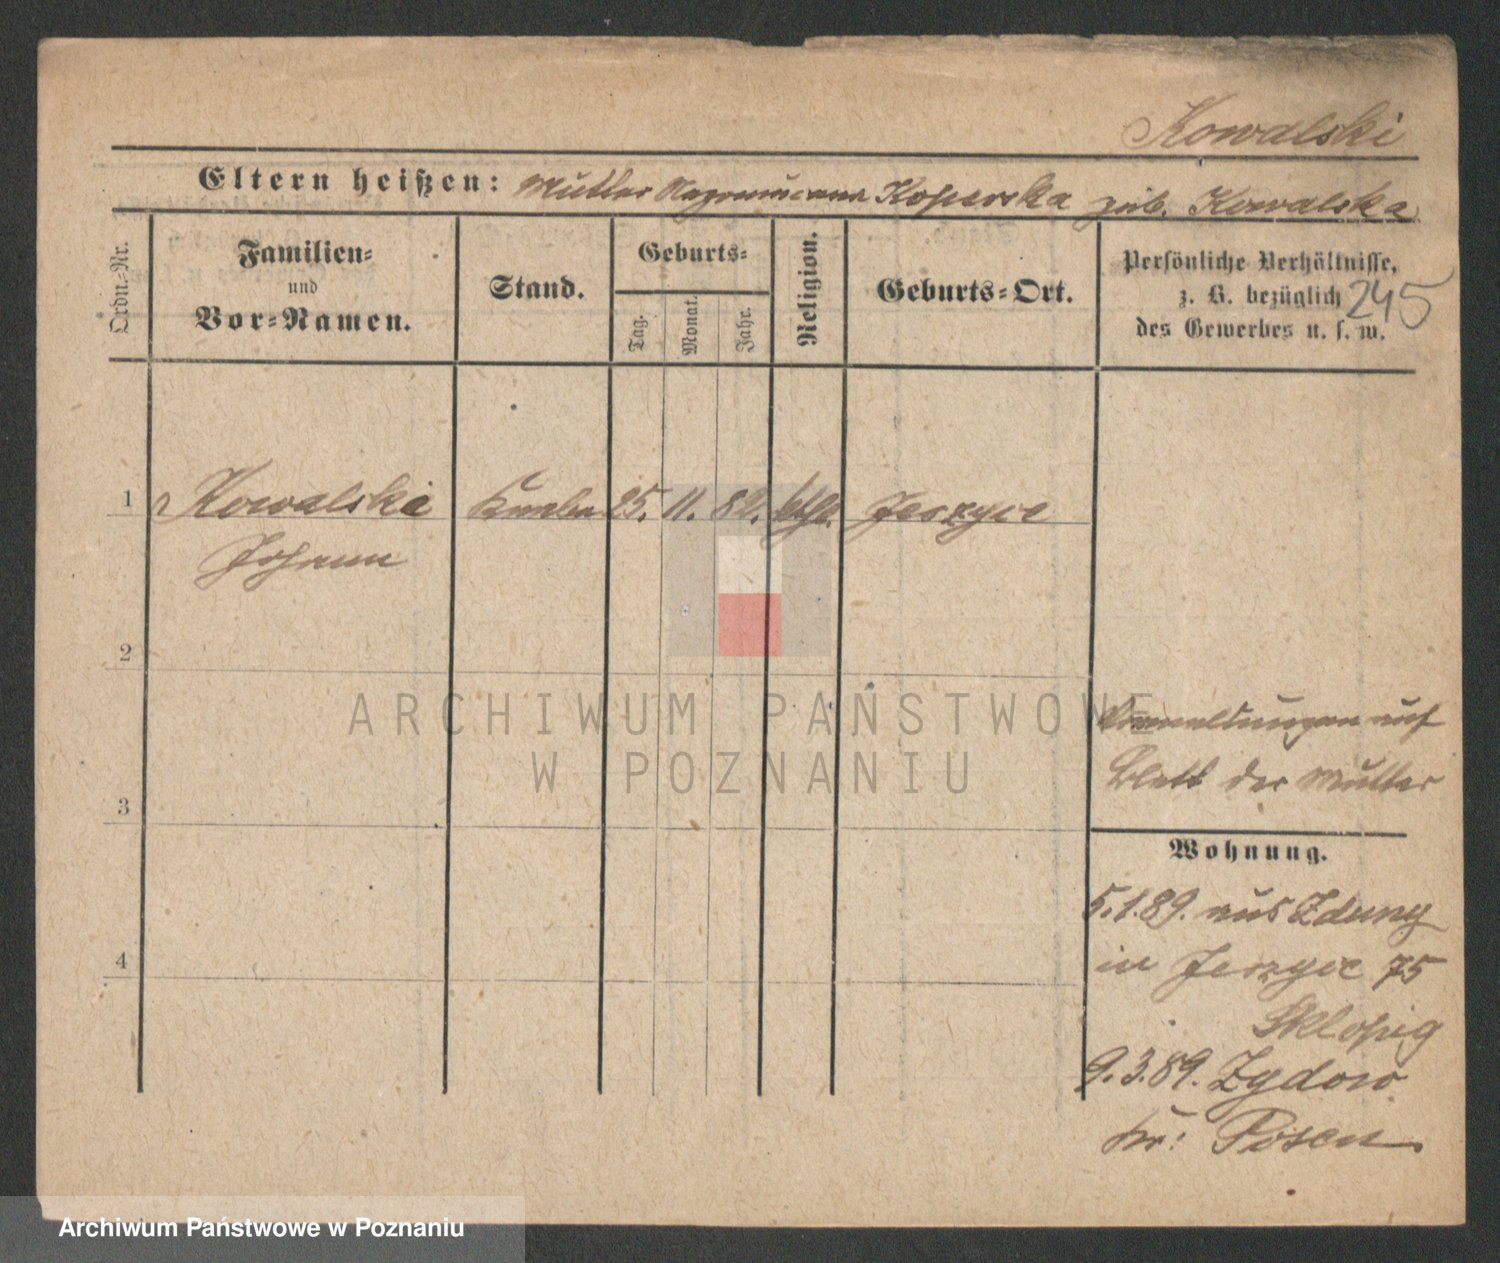 Kowalski
Eltern heißen: Mutter Koperska geb. Kowalska
Ordn.-Nr.
Familien-
und
Vor-Namen.
Stand.
Geburts-
Tag.
Monat.
Jahr.
Religion.
Geburts-Ort.
Persönliche Verhältnisse,
z. B. bezüglich
des Gewerbes u. s. w.
245
1 Kowalski Knabe 25. 11. 82. kath. Jerzyce
Johann
2
ARCHIWUM PAŃSTWOWE
W POZNANIU
3
Anmeldungen auf
Blatt der Mutter
Wohnung.
5.1.89. aus Zduny
in Jerzyce 75
4
9.3.89. Zydowo
Kr: Posen
Archiwum Państwowe w Poznaniu